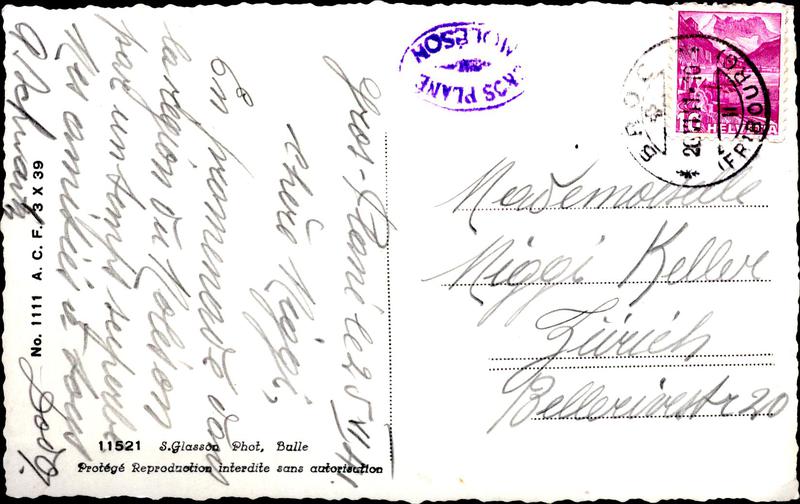 Gros-Plané le 25 VII.41
chère Niggi,
En promenade dans
la région du Moléson
par un temps superbe
Mes amitiés à tous
Dody
No. 1111 A. C. F. 3 X 39
11521 S. Glasson Phot, Bulle
Protégé Reproduction interdite sans autorisation
GROS PLANÉ
MOLÉSON
BROC
(FRIBOURG)
15
HELVETIA
Mademoiselle
Niggi Keller
Zürich
Bellerivestr 20